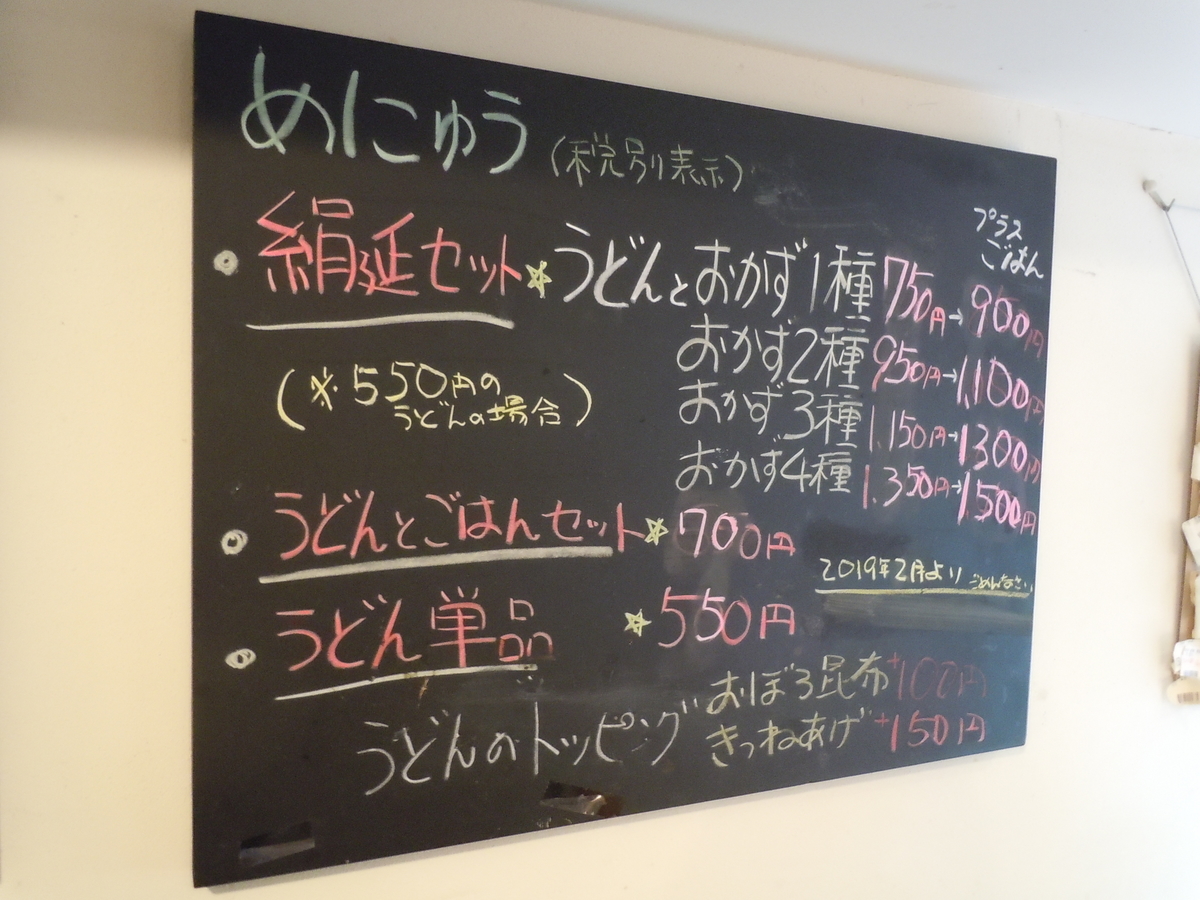 めにゅう (税別表示)
プラス
ごはん
• 絹延セット☆うどんとおかず1種 750円→900円
おかず2種 950円→1,100円
(※550円の
うどんの場合)
おかず3種 1,150円→1,300円
おかず4種 1,350円→1,500円
• うどんとごはんセット☆ 700円
2019年2月より ごめんなさい
• うどん単品 ☆550円
うどんのトッピング おぼろ昆布+100円
きつねあげ+150円